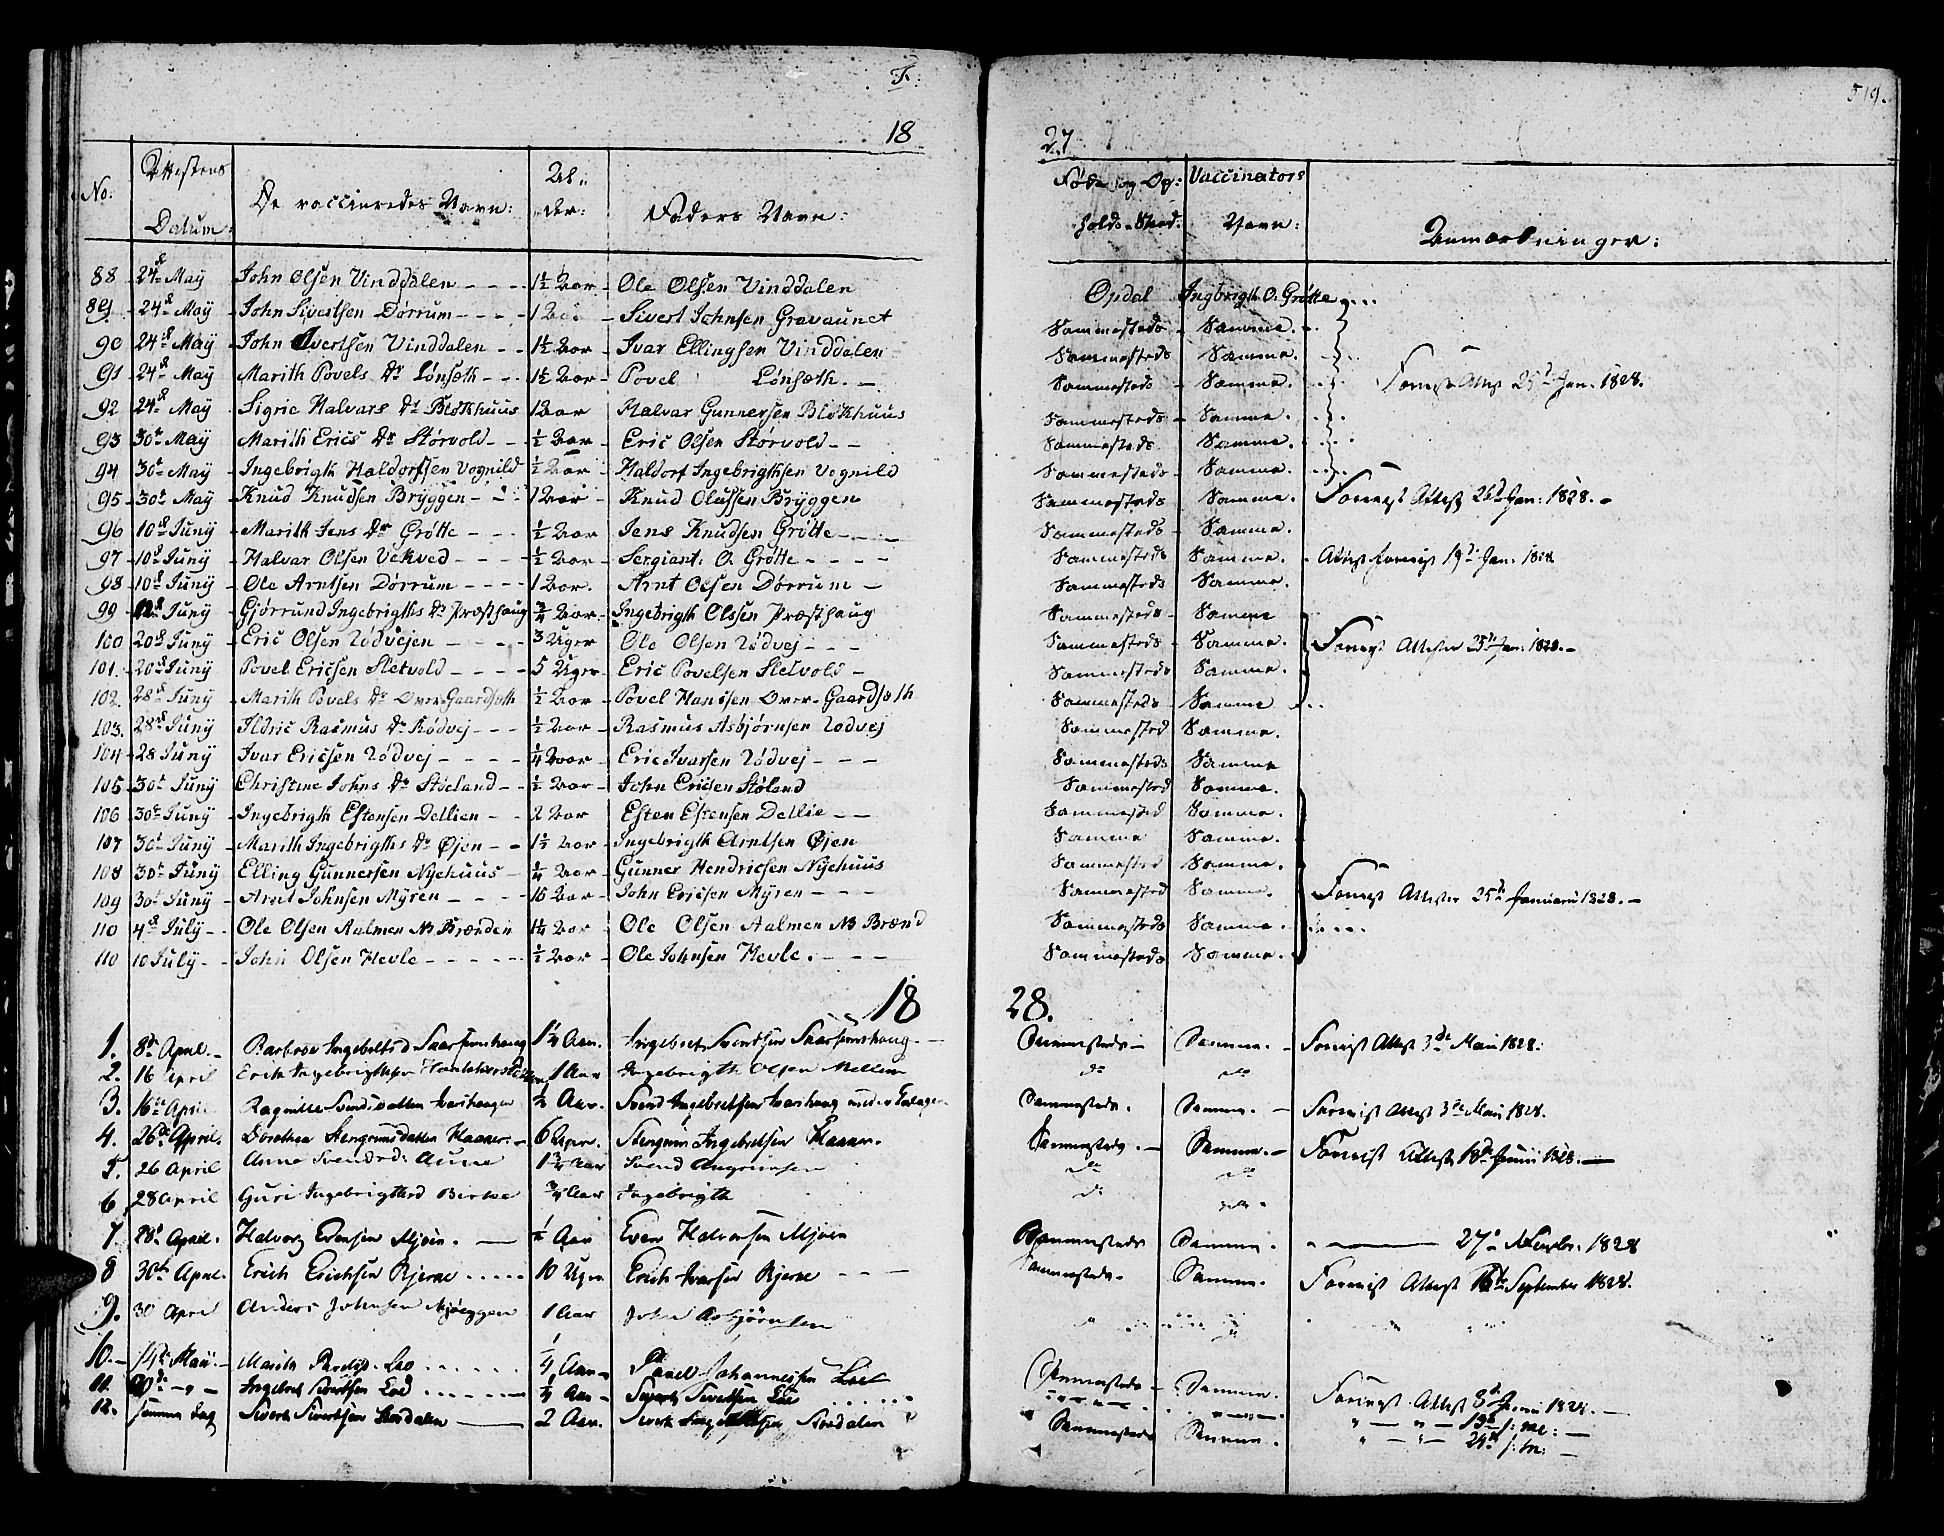 F.
519.
18
27
No: Attestens Datum: De vaccineredes Navn: Al- der: Faders Navn: Føde og Op- holds-Sted: Vaccinators Navn: Anmærkninger:
88 24d May John Olsen Vinddalen - - - 1½ Aar Ole Olsen Vinddalen Opdal Ingbrigth O. Grøtte
89 24d May John Sivertsen Dørrum - - - 1 Aar Sivert Johnsen Gravaunet Sammesteds Samme.
90 24d May John Ivertsen Vinddalen - - 1½ Aar Ivar Ellingsen Vinddalen Sammesteds Samme.
91 24d May Marith Povels Dr Lønsæth - - 1½ Aar Povel Lønsæth. - Sammesteds Samme. Forrige Attest 25d Jan. 1828.
92 24d May Sigric Halvars Dr Blokhuus 1 Aar Halvar Gunnersen Blokhuus Sammesteds Samme.
93 30t May Marith Erics Dr Storvold - - ½ Aar Eric Olsen Storvold - - Sammesteds Samme.
94 30t May Ingebrigth Haldorfsen Vognild ½ Aar Haldorf Ingebrigthsen Vognild Sammesteds Samme.
95 30t May Knud Knudsen Bryggen - - 1 Aar Knud Olufsen Bryggen Sammesteds Samme. Forrige Attest 26d Jan: 1828. -
96 10d Juny Marith Jens Dr Grøtte - - - ½ Aar Jens Knudsen Grøtte - - Sammesteds Samme.
97 10d Juny Halvar Olsen Vekved - - - - ½ Aar Sergiant O. Grøtte - - - - Sammesteds Samme. Attest 19d Jan: 1828
98 10d Juny Ole Arntsen Dørrum - - - 1 Aar. Arnt Olsen Dørrum - - Sammesteds Samme.
99 12d Juny Gjørrund Ingebrigths Dr Præsthaug ¾ Aar Ingebrigth Olssen Præsthaug Sammesteds Samme
100 20d Juny Eric Olsen Rødvejen - - - - 3 Uger Ole Olsen Rødvej - - - Sammesteds Samme. Attester 25d Jan: 1828. -
101. 20d Juny Povel Ericsen Sletvold - - - - 5 Uger Eric Povelsen Sletvold - Sammesteds Samme.
102. 28d Juny Marith Povels Dr Over-Gaardsøth ½ Aar Povel Hanssen Over-Gaardsøth Sammesteds Samme
103. 28d Juny Ildric Rasmus Dr Rødvej - - - ½ Aar Rasmus Asbjørnsen Rødvej Sammested Samme.
104 28 Juny Ivar Ericsen Rødvej - - - - ¼ Aar Eric Ivarsen Rødvej - - - Sammesteds Samme
105 30t Juny Christine Johns Dr Støeland - - ½ Aar John Ericsen Støland Sammested Samme.
106 30t Juny Ingebrigth Estensen Dellien - - 2 Aar Esten Estensen Dellie - - Sammested Samme.
107 30t Juny Marith Ingebrigths Dr Øjen - - 1½ Aar Ingebrigth Arntsen Øjen Samme Samme.
108 30t Juny Elling Gunnersen Nyehuus - ¼ Aar Gunner Hendricsen Nyehuus Sammested Samme.
109 30t Juny Arnt Johnsen Myren - - - - 16 Aar John Ericsen Myren - - - Sammested Samme. Attester 25d Januarii 1828. -
110 4d July - - Ole Olsen Aalmen NB Brænden 1¼ Aar Ole Olsen Aalmen NB Brænd Sammesteds Samme.
110 10 July - - John Olsen Hevle - - - - - ½ Aar Ole Johnsen Hevle. - - - Sammesteds Samme.
18
28.
1. 8de April. - Barbroe Ingebrets d 1¼ Aar. Ingebret Sivertsen Sammesteds - Samme. - Forrige Attest 3de Maii 1828.
2. 16 April Erik Ingebrigthsen 1 Aar Ingebrigth Olsen Mellem do do
3. 16de April Ragnille Svendsdatter Ivarshaugen ½ Aar. Svend Ingebretsen Ivarshaug Sammesteds. Samme. - Attest 3de Maii 1828.
4. 26de April. Dorothea Stengrimsdatter Haaker. - 6 Uger. Stengrim Ingebretsen Haaker. Sammesteds. - Samme. - Attest 18de Junii 1828. -
5. 26 April Anne Svendsd: Aune 1¾ Aar Svend Angrimsen do do
6 28 April Guri Ingebrigthsd Birke ¾ Aar Ingebrigth do
7. 28d April. Halvor Evensen Mjøen. - Aar Even Halvorsen Mjøen Sammesteds Samme. 27de 1828
8 30te April. Erich Erichsen Rjerne ..... 10 Uger Erich Ivarsen Rjerne - - - Sammesteds. Samme. Attest 16de September 1828.
9. 30 April Anders Johnsen Mjøeggen 1 Aar John Asbjørnsen
10. - 14de Maii. - Marith Povelsd. Loe ...... ¼ Aar Povel Johannessen Loe Sammesteds - Samme. Attest 3d Junii 1828. -
11. 20de - " - Ingebret Sivertsen Loe ....... ¼ Aar Sivert Sivertsen Loe ....... " - " - 19de
12. samme Dag Sivert Sivertsen Skordalen - 2 Aar. Sivert Skordalen Sammesteds Samme. " - " - 24de